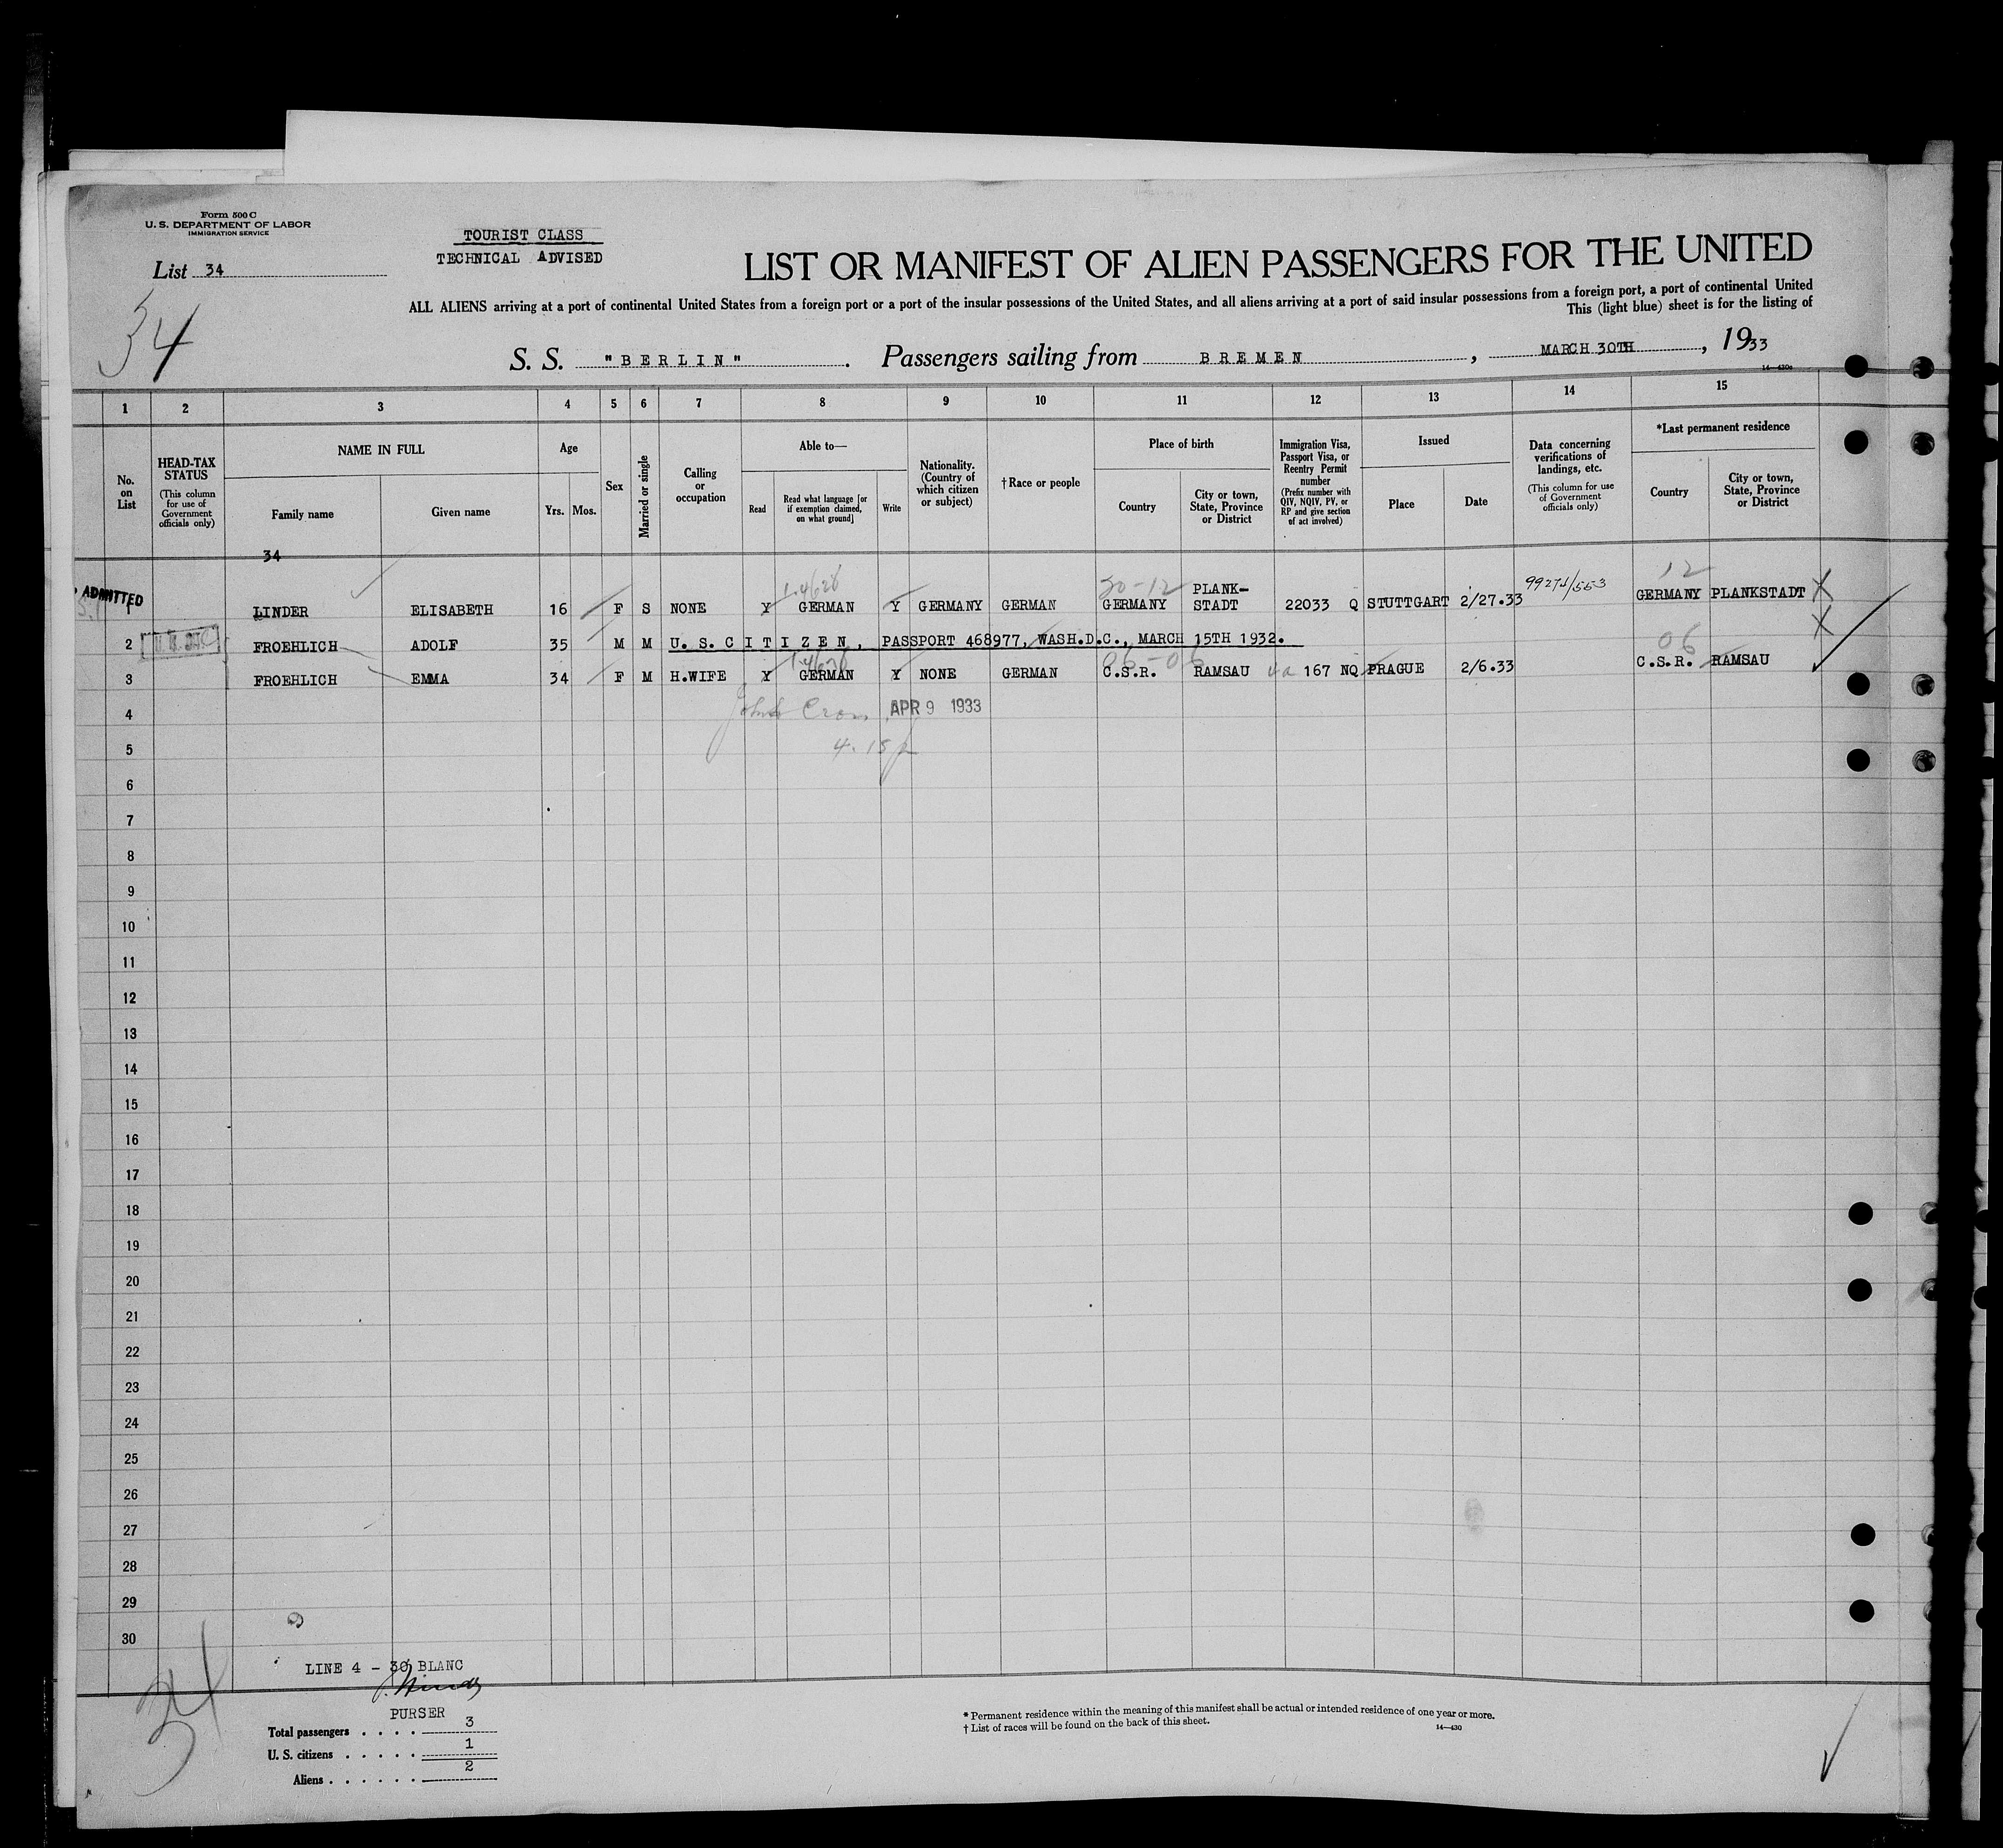 Form 500 C
U. S. DEPARTMENT OF LABOR
IMMIGRATION SERVICE
TOURIST CLASS
TECHNICAL ADVISED
List 34
34
LIST OR MANIFEST OF ALIEN PASSENGERS FOR THE UNITED
ALL ALIENS arriving at a port of continental United States from a foreign port or a port of the insular possessions of the United States, and all aliens arriving at a port of said insular possessions from a foreign port, a port of continental United
This (light blue) sheet is for the listing of
S. S. "BERLIN". Passengers sailing from BREMEN, MARCH 30TH, 1933
1 2 3 4 5 6 7 8 9 10 11 12 13 14 15
No. on List
HEAD-TAX STATUS
(This column for use of Government officials only)
NAME IN FULL
Family name
Given name
Age
Yrs. Mos.
Sex
Married or single
Calling or occupation
Able to—
Read
Read what language [or if exemption claimed, on what ground]
Write
Nationality. (Country of which citizen or subject)
†Race or people
Place of birth
Country
City or town, State, Province or District
Immigration Visa, Passport Visa, or Reentry Permit number
(Prefix number with QIV, NQIV, PV, or RP and give section of act involved)
Issued
Place
Date
Data concerning verifications of landings, etc.
(This column for use of Government officials only)
*Last permanent residence
Country
City or town, State, Province or District
34
ADMITTED
1 LINDER ELISABETH 16 F S NONE Y GERMAN Y GERMANY GERMAN GERMANY PLANK-STADT 22033 Q STUTTGART 2/27.33 GERMANY PLANKSTADT X
30-12
12
2 FROEHLICH ADOLF 35 M M U. S. CITIZEN, PASSPORT 468977, WASH.D.C., MARCH 15TH 1932. X
06
3 FROEHLICH EMMA 34 F M H.WIFE Y GERMAN Y NONE GERMAN C.S.R. RAMSAU 167 NQ PRAGUE 2/6.33 C.S.R. RAMSAU
4 APR 9 1933
5
6
7
8
9
10
11
12
13
14
15
16
17
18
19
20
21
22
23
24
25
26
27
28
29
30
LINE 4 - 30 BLANC
PURSER
Total passengers . . . . 3
U. S. citizens . . . . . 1
Aliens . . . . . . 2
34
* Permanent residence within the meaning of this manifest shall be actual or intended residence of one year or more.
† List of races will be found on the back of this sheet.
14—430